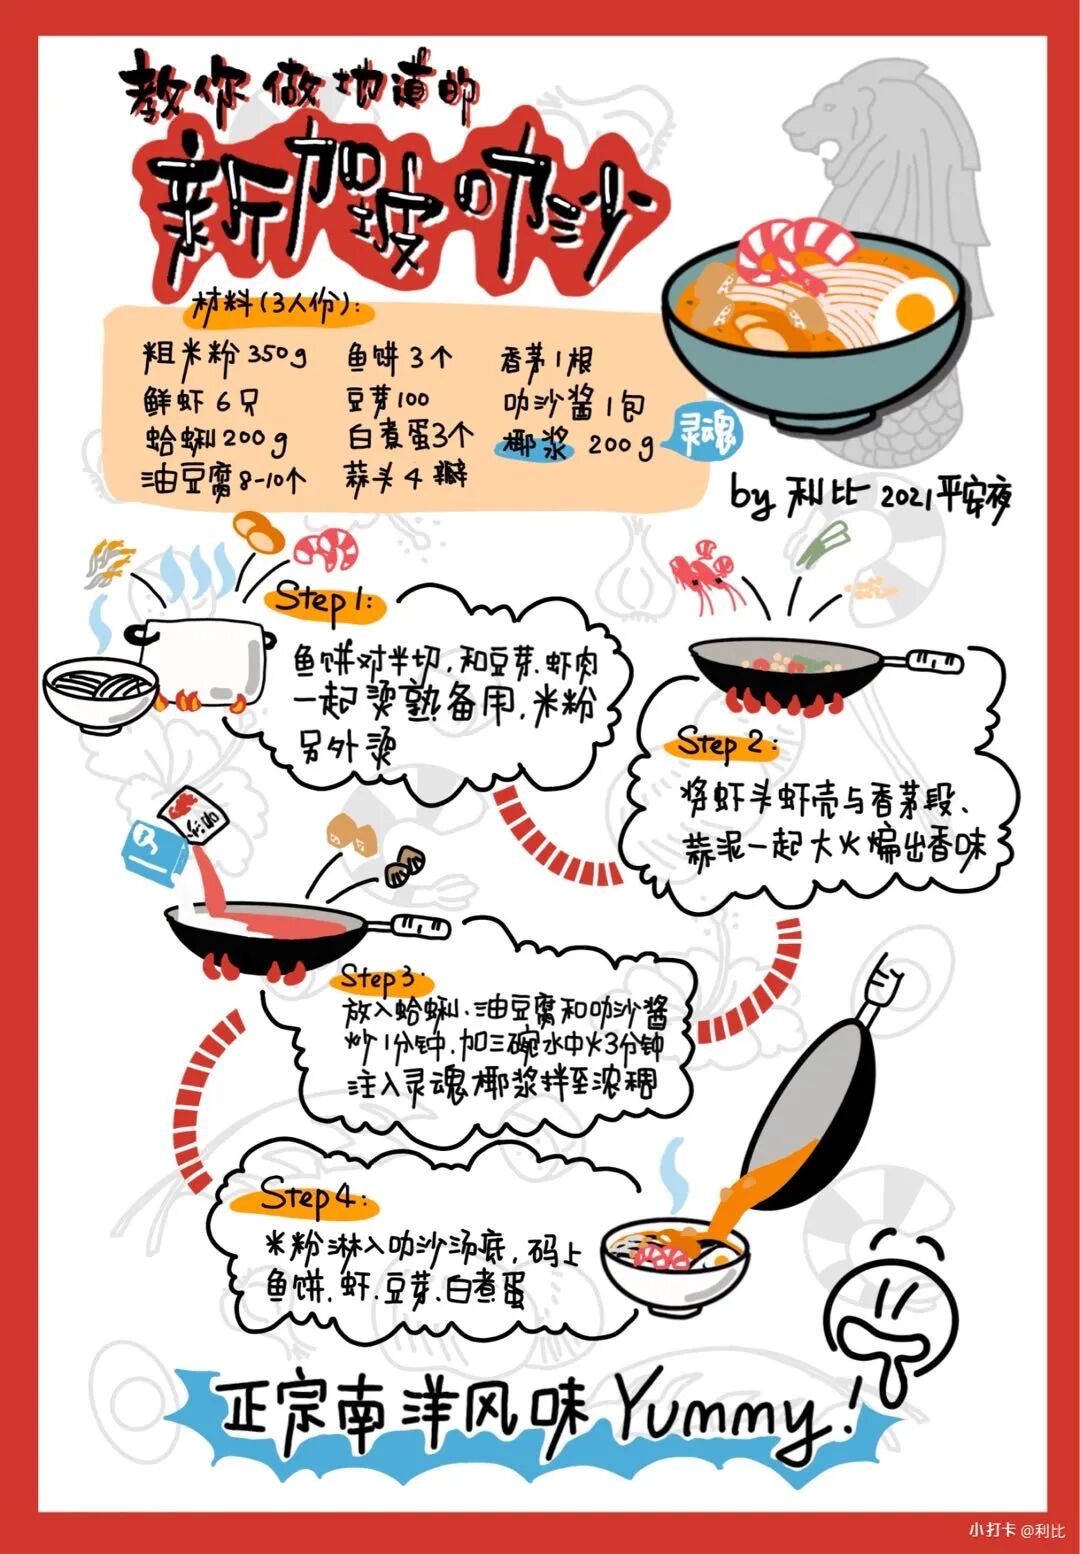 教你做地道的
新加坡叻沙
材料(3人份):
粗米粉 350g
鱼饼 3个
香茅 1根
鲜虾 6只
豆芽 100
叻沙酱 1包
蛤蜊 200g
白煮蛋3个
椰浆 200g
灵魂
油豆腐 8-10个
蒜头 4 瓣
by 利比 2021平安夜
Step 1:
鱼饼对半切,和豆芽、虾肉
一起烫熟备用,米粉
另外烫
Step 2:
将虾头虾壳与香茅段、
蒜泥一起大火煸出香味
叻沙
Step 3:
放入蛤蜊、油豆腐和叻沙酱
炒1分钟,加三碗水中火3分钟
注入灵魂椰浆拌至浓稠
Step 4:
米粉淋入叻沙汤底,码上
鱼饼、虾、豆芽、白煮蛋
正宗南洋风味 Yummy!
小打卡 @利比